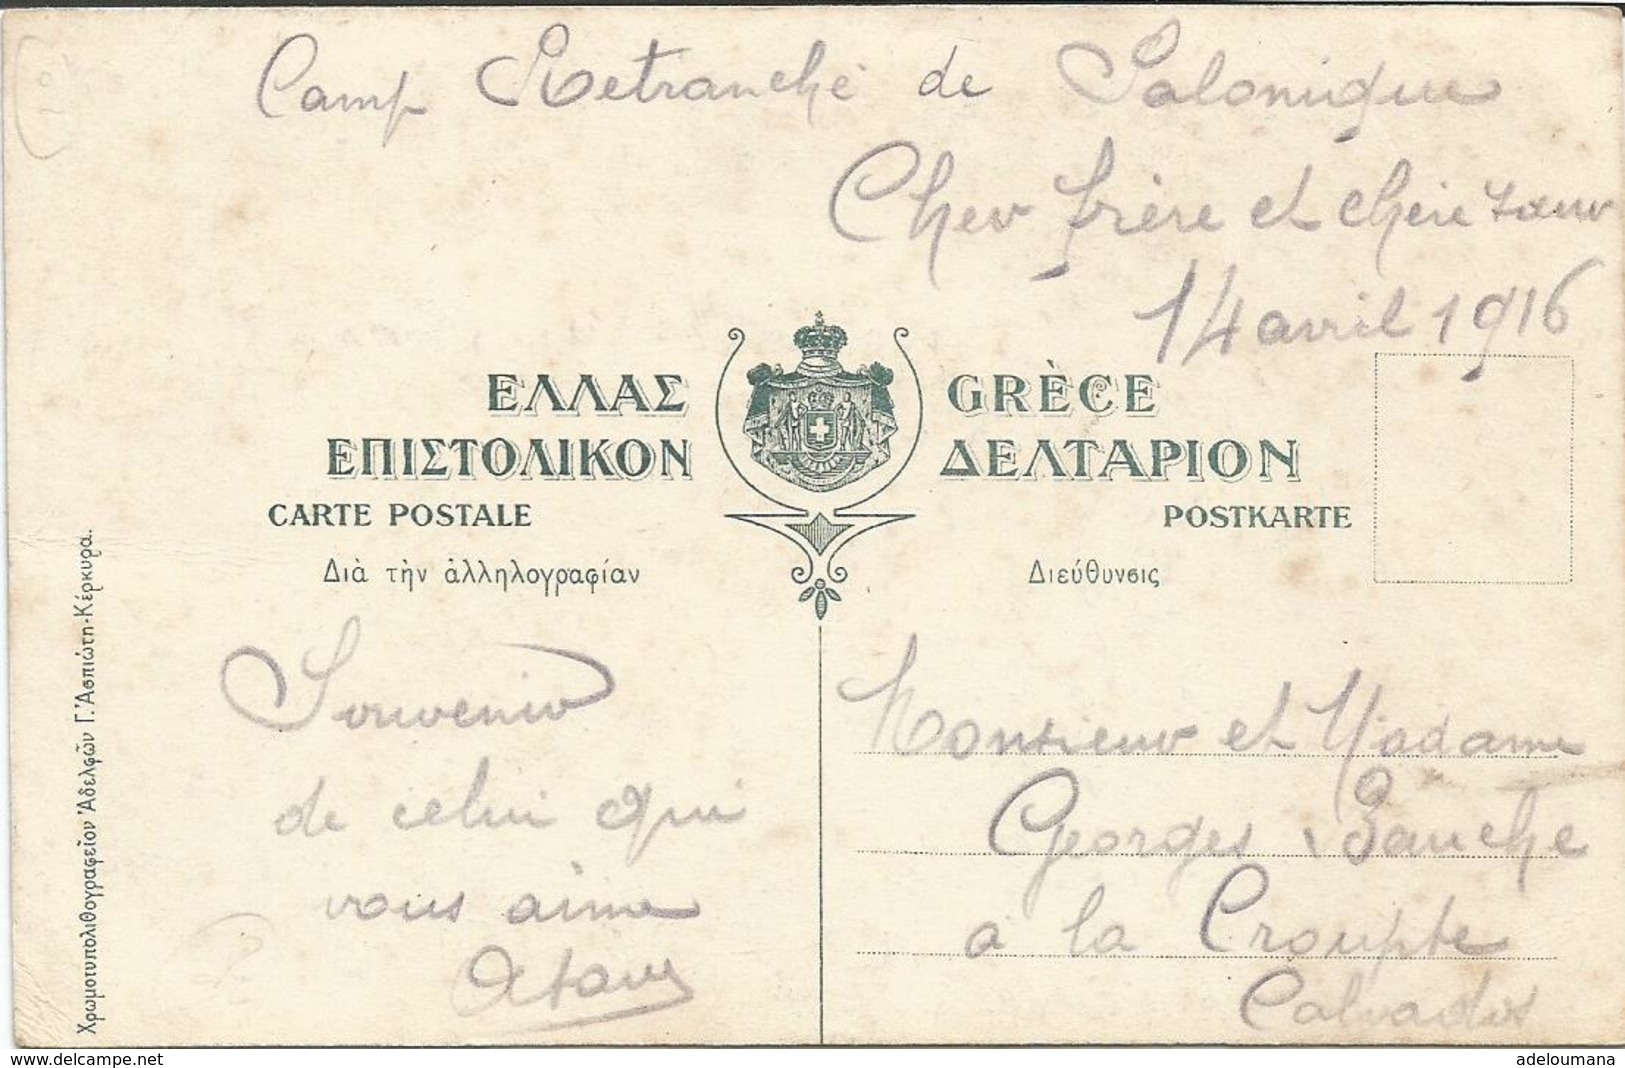 Camp Retranché de Salonique
Cher frère et chère
14 avril 1916
ΕΛΛΑΣ GRÈCE
ΕΠΙΣΤΟΛΙΚΟΝ ΔΕΛΤΑΡΙΟΝ
CARTE POSTALE POSTKARTE
Διὰ τὴν ἀλληλογραφίαν
Διεύθυνσις
Souvenir
de celui qui
vous aime
Monsieur et Madame
Georges Bauche
a la Croupte
Calvados
Χρωμοτυπολιθογραφεῖον Ἀδελφῶν Γ. Ἀσπιώτη-Κέρκυρα.
www.delcampe.net
adeloumana